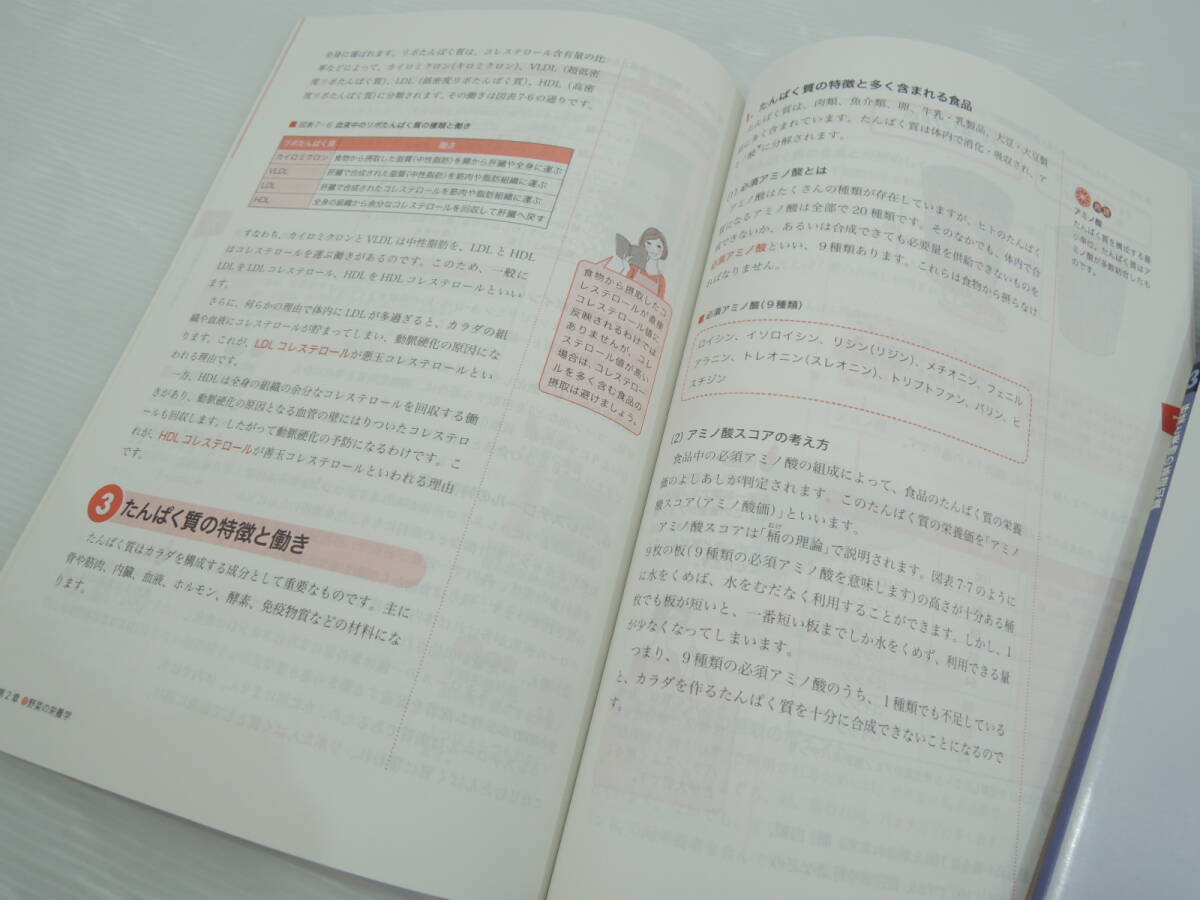 全身に運ばれます。リポたんぱく質は、コレステロール含有量の比
率などによって、カイロミクロン(キロミクロン)、VLDL(超低密
度リポたんぱく質)、LDL(低密度リポたんぱく質)、HDL(高密
度リポたんぱく質)に分類されます。その働きは図表7-6の通りです。
■図表7-6 血液中のリポたんぱく質の種類と働き
リポたんぱく質 働き
カイロミクロン 食物から摂取した脂質(中性脂肪)を腸から肝臓や全身に運ぶ
VLDL 肝臓で合成された脂質(中性脂肪)を筋肉や脂肪組織に運ぶ
LDL 肝臓で合成されたコレステロールを筋肉や脂肪組織に運ぶ
HDL 全身の組織から余分なコレステロールを回収して肝臓へ戻す
すなわち、カイロミクロンとVLDLは中性脂肪を、LDLとHDL
はコレステロールを運ぶ働きがあるのです。このため、一般に
LDLをLDLコレステロール、HDLをHDLコレステロールといい
ます。
さらに、何らかの理由で体内にLDLが多過ぎると、カラダの組
織や血液にコレステロールが貯まってしまい、動脈硬化の原因にな
ります。これが、LDLコレステロールが悪玉コレステロールとい
われる理由です。
一方、HDLは全身の組織の余分なコレステロールを回収する働
きがあり、動脈硬化の原因となる血管の壁にはりついたコレステロ
ールも回収します。したがって動脈硬化の予防になるわけです。こ
れが、HDLコレステロールが善玉コレステロールといわれる理由
です。
食物から摂取したコ
レステロールが直接
コレステロール値に
反映されるわけでは
ありませんが、コレ
ステロール値が高い
場合は、コレステロー
ルを多く含む食品の
摂取は避けましょう。
3 たんぱく質の特徴と働き
たんぱく質はカラダを構成する成分として重要なものです。主に
骨や筋肉、内臓、血液、ホルモン、酵素、免疫物質などの材料にな
ります。
第2章 野菜の栄養学
1. たんぱく質の特徴と多く含まれる食品
たんぱく質は、肉類、魚介類、卵、牛乳・乳製品、大豆・大豆製
品に多く含まれています。たんぱく質は体内で消化・吸収され、ア
ミノ酸*に分解されます。
(1) 必須アミノ酸とは
アミノ酸はたくさんの種類が存在していますが、ヒトのたんぱく
質になるアミノ酸は全部で20種類です。そのなかでも、体内で合
成できないか、あるいは合成できても必要量を供給できないものを
必須アミノ酸といい、9種類あります。これらは食物から摂らなけ
ればなりません。
■必須アミノ酸(9種類)
ロイシン、イソロイシン、リシン(リジン)、メチオニン、フェニル
アラニン、トレオニン(スレオニン)、トリプトファン、バリン、ヒ
スチジン
(2) アミノ酸スコアの考え方
食品中の必須アミノ酸の組成によって、食品のたんぱく質の栄養
価のよしあしが判定されます。このたんぱく質の栄養価を「アミノ
酸スコア(アミノ酸価)」といいます。
アミノ酸スコアは「桶の理論」で説明されます。図表7-7のように
9枚の板(9種類の必須アミノ酸を意味します)の高さが十分ある桶
に水をくめば、水をむだなく利用することができます。しかし、1
枚でも板が短いと、一番短い板までしか水をくめず、利用できる量
が少なくなってしまいます。
つまり、9種類の必須アミノ酸のうち、1種類でも不足している
と、カラダを作るたんぱく質を十分に合成できないことになるので
す。
アミノ酸
たんぱく質を構成する最
小単位。たんぱく質はア
ミノ酸が多数結合したも
のです。